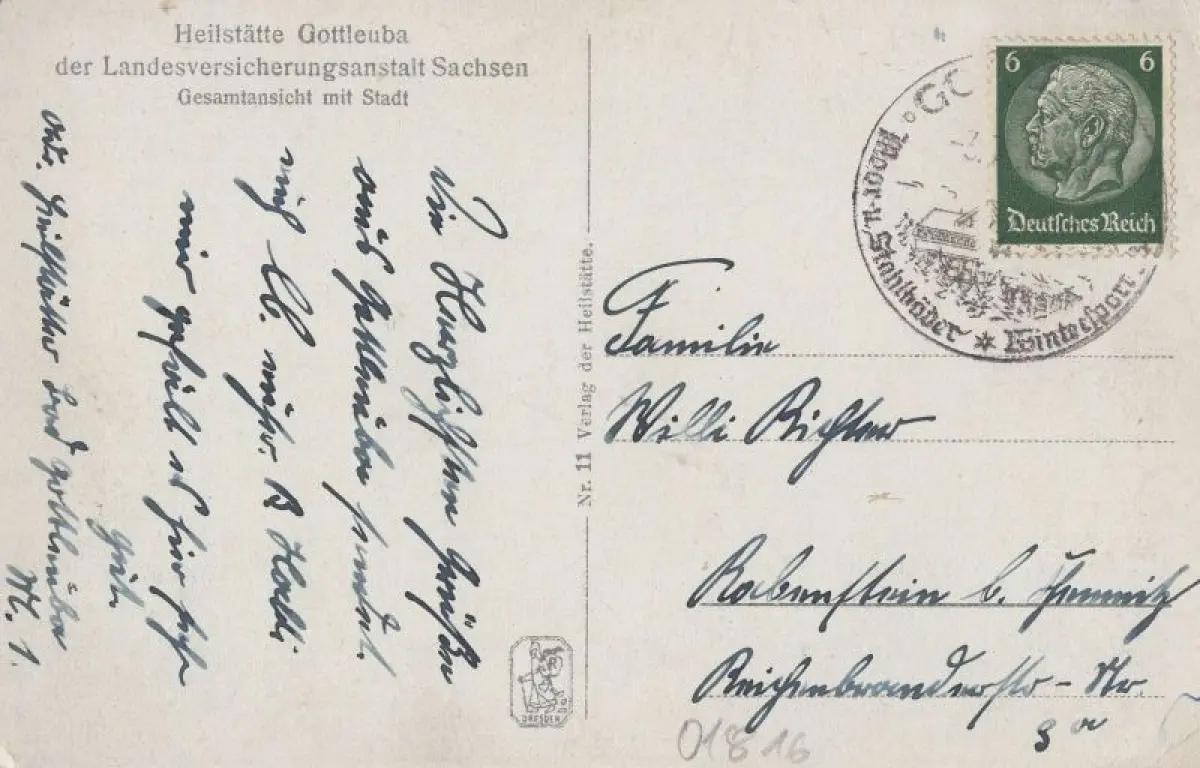 Heilstätte Gottleuba
der Landesversicherungsanstalt Sachsen
Gesamtansicht mit Stadt
Die Herzlichsten Grüße
aus Gottleuba sendet
mir gefällt es hier sehr
gut.
Abs. Heilstätte Bad Gottleuba
M. 1.
Nr. 11 Verlag der Heilstätte.
DRESDEN
GO
Moor- u. Stahlbäder * Wintersport
6 6
Deutsches Reich
Familie
Willi Richter
Rabenstein b. Chemnitz
Reichenbranderstr- Nr.
9 a
01816